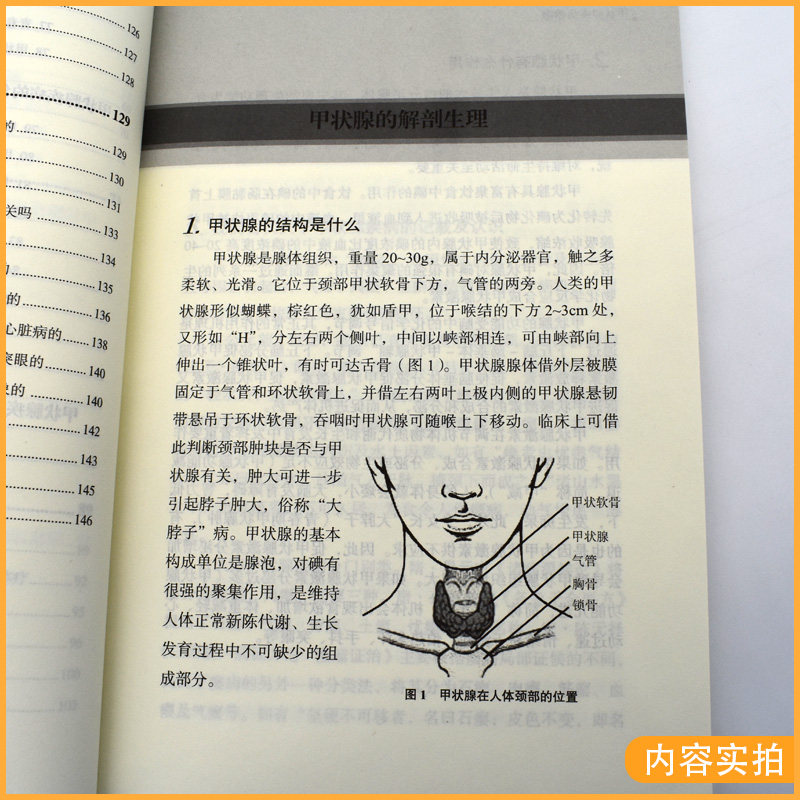 126
127
128
129
的
129
130
131
关吗
133
134
135
的
136
心脏病的
138
突眼的
140
象的
140
142
143
145
146
甲状腺的解剖生理
1. 甲状腺的结构是什么
甲状腺是腺体组织，重量 20~30g，属于内分泌器官，触之多
柔软、光滑。它位于颈部甲状软骨下方，气管的两旁。人类的甲
状腺形似蝴蝶，棕红色，犹如盾甲，位于喉结的下方 2~3cm 处，
又形如“H”，分左右两个侧叶，中间以峡部相连，可由峡部向上
伸出一个锥状叶，有时可达舌骨（图 1）。甲状腺腺体借外层被膜
固定于气管和环状软骨上，并借左右两叶上极内侧的甲状腺悬韧
带悬吊于环状软骨，吞咽时甲状腺可随喉上下移动。临床上可借
此判断颈部肿块是否与甲
状腺有关，肿大可进一步
引起脖子肿大，俗称“大
脖子”病。甲状腺的基本
构成单位是腺泡，对碘有
很强的聚集作用，是维持
人体正常新陈代谢、生长
发育过程中不可缺少的组
成部分。
甲状软骨
甲状腺
气管
胸骨
锁骨
图 1 甲状腺在人体颈部的位置
内容实拍